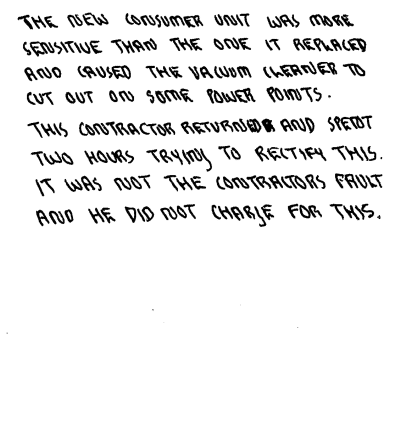 THE NEW CONSUMER UNIT WAS MORE
SENSITIVE THAN THE ONE IT REPLACED
AND CAUSED THE VACUUM CLEANER TO
CUT OUT ON SOME POWER POINTS.
THIS CONTRACTOR RETURNED AND SPENT
TWO HOURS TRYING TO RECTIFY THIS.
IT WAS NOT THE CONTRACTORS FAULT
AND HE DID NOT CHARGE FOR THIS.